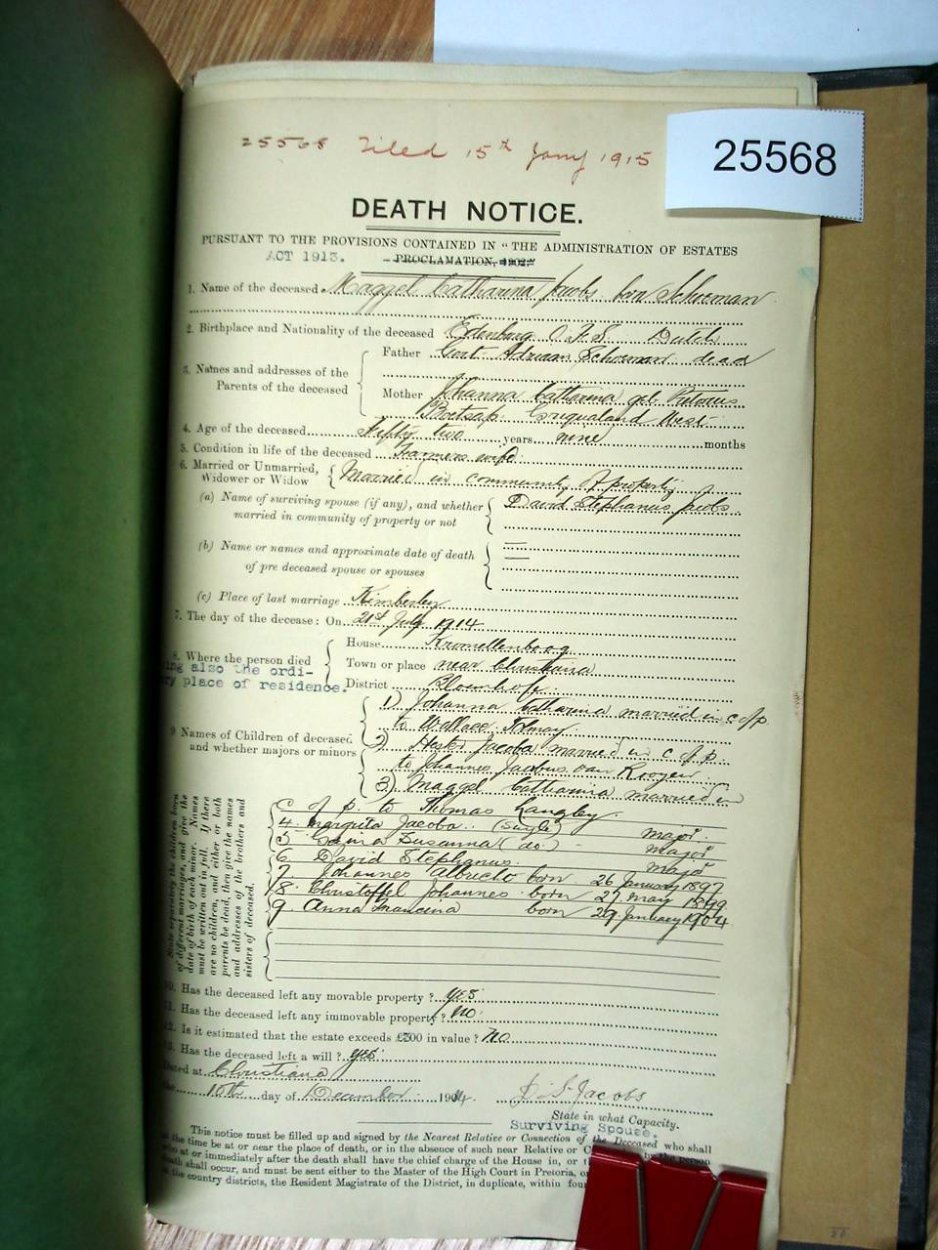 25568 Filed 15th Jany 1915
25568
DEATH NOTICE.
PURSUANT TO THE PROVISIONS CONTAINED IN "THE ADMINISTRATION OF ESTATES
ACT 1913. PROCLAMATION, 1902."
1. Name of the deceased Maggel Catharina Jacobs born Schoeman
2. Birthplace and Nationality of the deceased Edenburg O.F.S. Dutch
3. Names and addresses of the Parents of the deceased
Father Gert Adriaan Schoeman dead
Mother Johanna Catharina geb Pretorius
Boetsap Griqualand West
4. Age of the deceased Fifty two years nine months
5. Condition in life of the deceased Farmers wife
6. Married or Unmarried, Widower or Widow Married in community of property
(a) Name of surviving spouse (if any), and whether married in community of property or not David Stephanus Jacobs
(b) Name or names and approximate date of death of pre deceased spouse or spouses
(c) Place of last marriage Kimberley
7. The day of the decease: On 21st July 1914
8. Where the person died
ing also the ordi-
ry place of residence.
House
Town or place near Christiana
District Bloemhof
9 Names of Children of deceased and whether majors or minors
1) Johanna Catharina married in c of p
to Wallace
2) Hester Jacoba married in c of p.
to Johannes Jacobus van Rooyen
3) Maggel Catharina married in
c of p. to Thomas Langley
4. Margrita Jacoba (Single) major
5 Susanna (do) - major
6 David Stephanus major
7. Johannes Albrecto born 26 January 1897
8. Christoffel Johannes born 27 May 1899
9. Anna Francina born 29 January 1904
State separately the children born
of different marriages, and give the
date of birth of each minor. Names
must be written out in full. If there
are no children, and either or both
parents be dead, then give the names
and addresses of the brothers and
sisters of deceased.
10. Has the deceased left any movable property? yes
11. Has the deceased left any immovable property? No
12. Is it estimated that the estate exceeds £300 in value? No
13. Has the deceased left a will? yes
Dated at Christiana
10th day of December 1914
D. S. Jacobs
State in what Capacity.
Surviving Spouse.
This notice must be filled up and signed by the Nearest Relative or Connection of the Deceased who shall
at the time be at or near the place of death, or in the absence of such near Relative or by the person
who at or immediately after the death shall have the chief charge of the House in, or
death shall occur, and must be sent either to the Master of the High Court in Pretoria, or
the country districts, the Resident Magistrate of the District, in duplicate, within